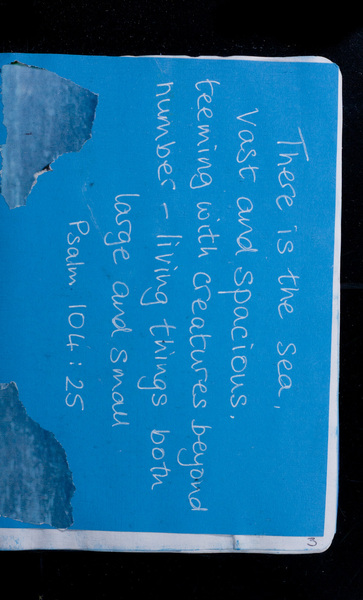 There is the sea,
vast and spacious,
teeming with creatures beyond
number - living things both
large and small
Psalm 104:25
3